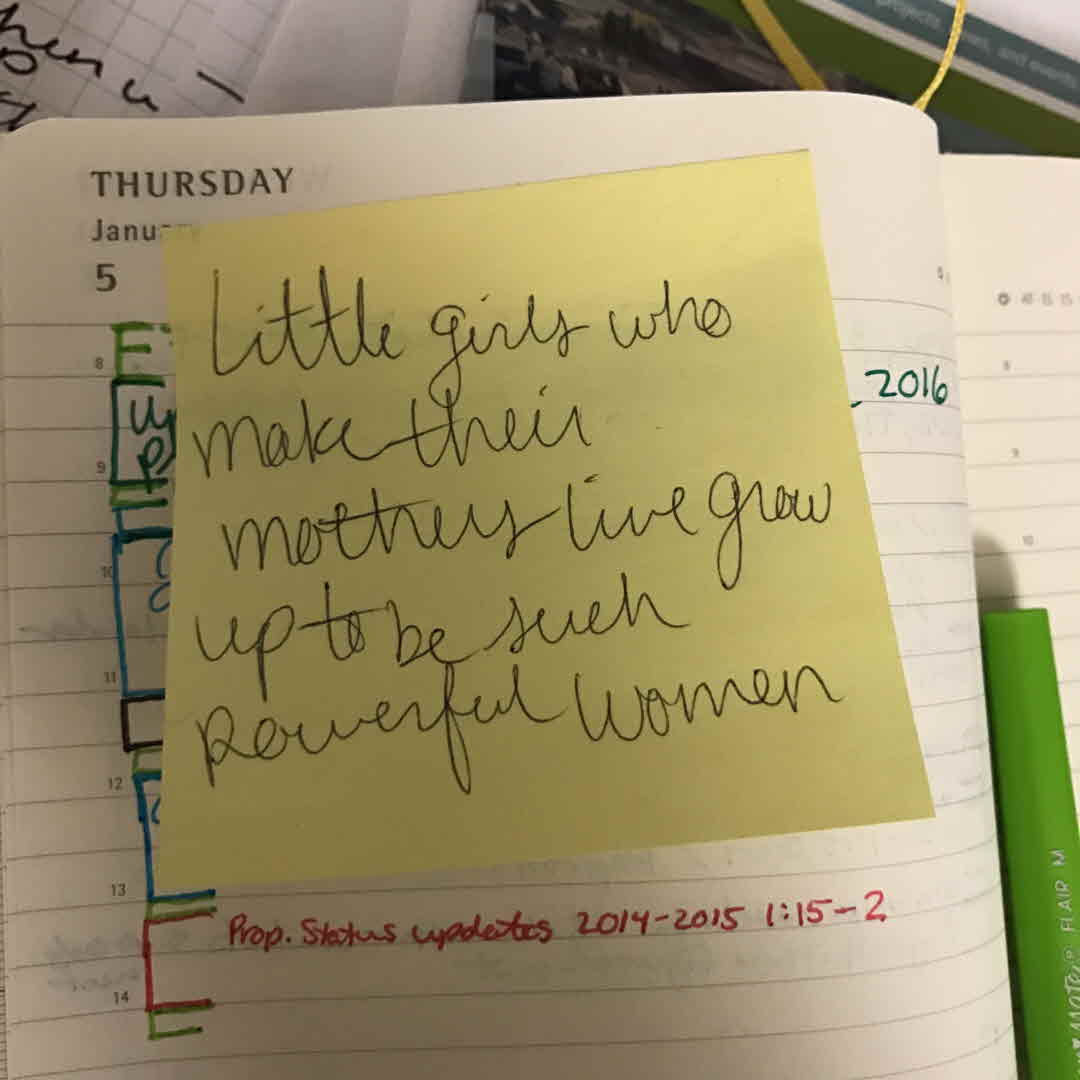 THURSDAY
5
Little girls who
make their
mothers live grow
up to be such
powerful women
2016
8
9
10
11
12
13
Prop. Status updates 2014-2015 1:15-2
14
projects
and events
8
9
10
FLAIR M